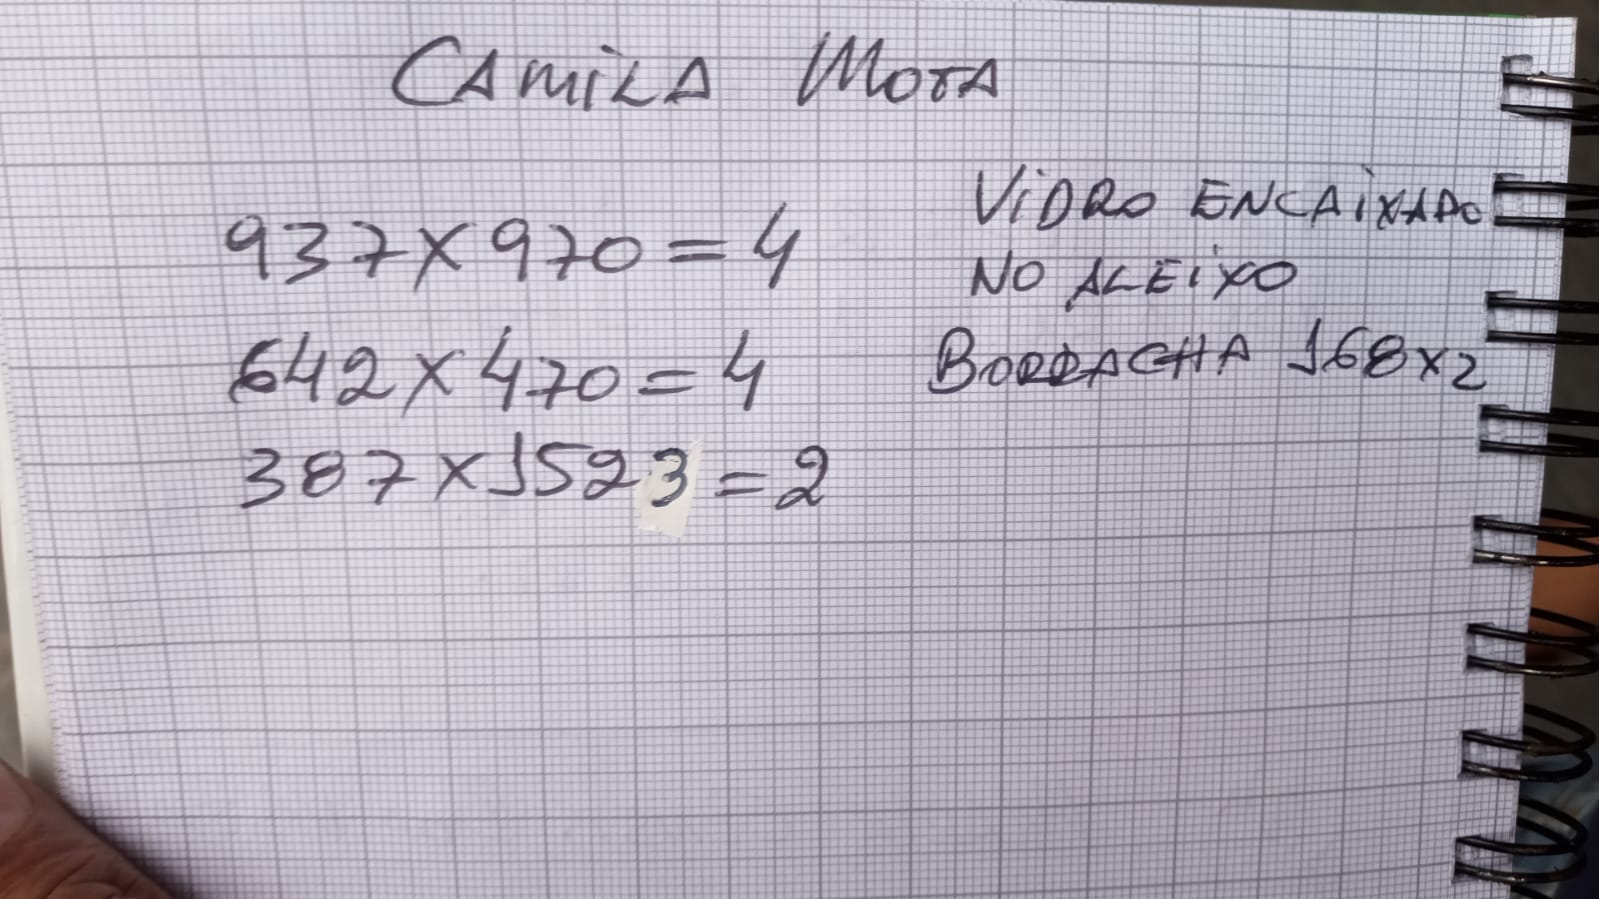 CAMILA MOTA
937X970=4
642X470=4
387X1523=2
VIDRO ENCAIXADO
NO ALEIXO
BORRACHA 168X2